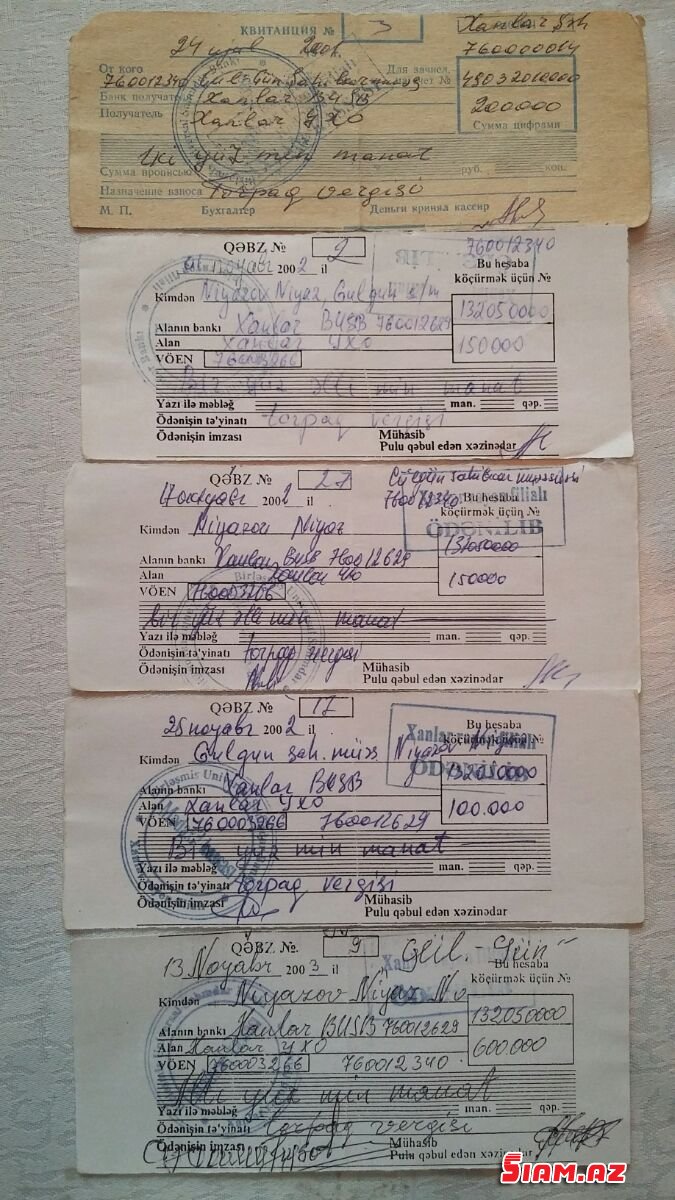 КВИТАНЦИЯ № 3
Xanlar
24 2001
760000014
От кого
Для зачисл.
760012340
Банк получателя Xanlar BUSB
200000
Получатель Xanlar YXO
Сумма цифрами
Iki yüz min manat
Сумма прописью руб. коп.
Назначение взноса Torpaq vergisi
М. П. Бухгалтер Деньги принял кассир
QƏBZ № 2
760012340
01 noyabr 2002 il
Bu hesaba
köçürmək üçün №
Kimdən Niyazov Niyaz, Gulgun s/m
132050000
Alanın bankı Xanlar BUSB 760012629
Alan Xanlar YXO
150000
VÖEN 760003266
Bir yüz əlli min manat
Yazı ilə məbləğ man. qəp.
Ödənişin tə'yinatı torpaq vergisi
Ödənişin imzası Mühasib
Pulu qəbul edən xəzinədar
QƏBZ № 27
17 oktyabr 2002 il
760012340
Bu hesaba
köçürmək üçün №
ÖDƏNİLİB
Kimdən Niyazov Niyaz
132050000
Alanın bankı Xanlar BUSB 760012629
Alan Xanlar YXO
150000
VÖEN 760003266
bir yüz əlli min manat
Yazı ilə məbləğ man. qəp.
Ödənişin tə'yinatı torpaq vergisi
Ödənişin imzası Mühasib
Pulu qəbul edən xəzinədar
QƏBZ № 17
25 noyabr 2002 il
Bu hesaba
köçürmək üçün №
Kimdən Gulgun səh. müəs Niyazov Niyaz
ÖDƏNİLİB
132050000
Alanın bankı Xanlar BUSB
Alan Xanlar YXO
100.000
VÖEN 760003266 760012629
Bir yüz min manat
Yazı ilə məbləğ man. qəp.
Ödənişin tə'yinatı torpaq vergisi
Ödənişin imzası Mühasib
Pulu qəbul edən xəzinədar
QƏBZ №. 9
13 Noyabr 2003 il
Bu hesaba
köçürmək üçün №
Kimdən Niyazov Niyaz
132050000
Alanın bankı Xanlar BUSB 760012629
Alan Xanlar YXO
600.000
VÖEN 760003266 760012340
Altı yüz min manat
Yazı ilə məbləğ man. qəp.
Ödənişin tə'yinatı torpaq vergisi
Ödənişin imzası Mühasib
Pulu qəbul edən xəzinədar
SIAM.AZ